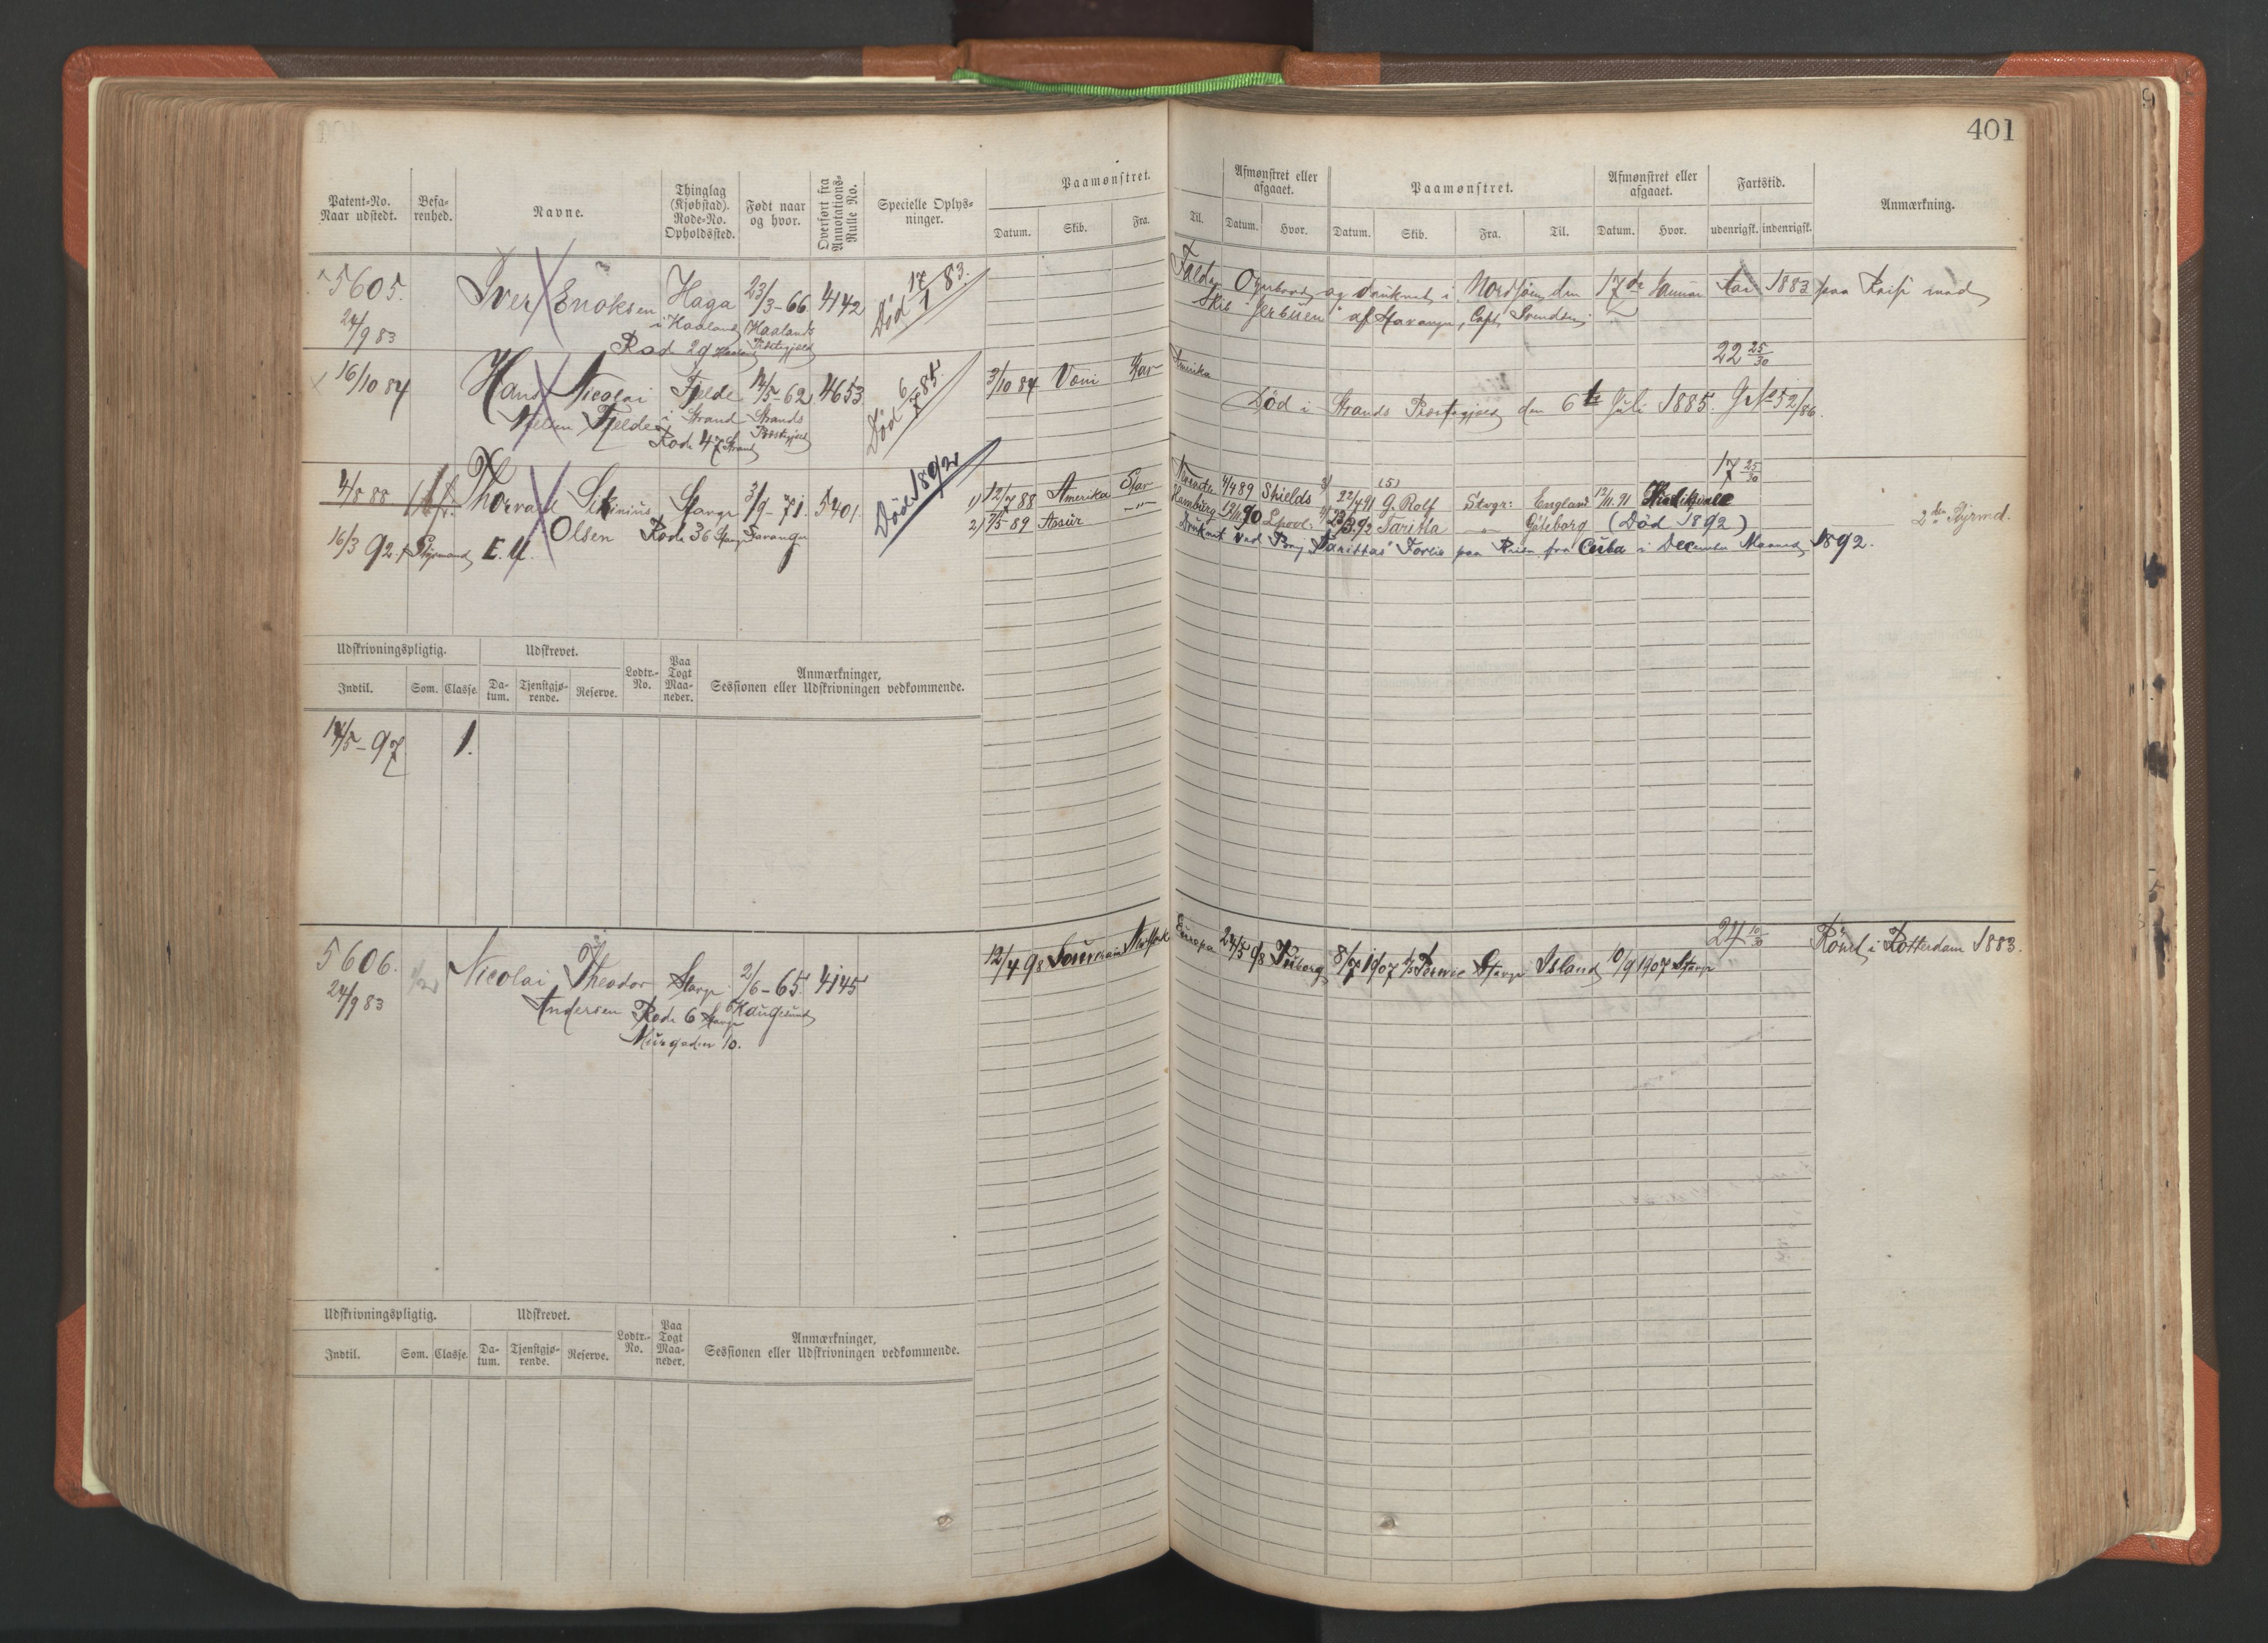 401
9
Patent-No. Naar udstedt.
Befa-renhed.
Navne.
Thinglag (Kjøbstad). Rode-No. Opholdssted.
Født naar og hvor.
Overført fra Annotations-Rulle No.
Specielle Oplys-ninger.
Paamønstret.
Datum. Skib. Fra. Til.
Afmønstret eller afgaaet.
Datum. Hvor.
Paamønstret.
Datum. Skib. Fra. Til.
Afmønstret eller afgaaet.
Datum. Hvor.
Fartstid.
udenrigsk. indenrigsk.
Anmærkning.
5605. Iver Enoksen Haga 23/3-66 4142 Død 17/1 83.
24/9 83 i Haaland Haalands Præstegjeld
Rode 29 Haaland
Faldt Overbord og druknet i Nordsjøen den 17de Januar 1883 paa Reise med
Skib af Stavanger, Capt. Svendsen
22 25/30
16/10 84 Hans Nicolai Fjelde 14/5-62 4653 Død 6/7 85. 3/10 84 Stav Amerika
Nielsen Fjelde i Strand Strands Præstegjeld
Rode 47 Strand
Død i Strands Præstegjeld den 6te Juli 1885. J No 52/86.
17 25/30
4/8 88 Thorvald Stavgr 3/9-71. 5401. Død 1892
Olsen Rode 36 Stavanger
16/3 92. Styrmand E. U.
1) 12/7 88 Amerika Stav 4/4 89 Shields
2) 7/5 89 Assur -"- Hamburg 12/11 90 Lpool
3) 22/4 91 G. Rolf Stvgr: England 12/11 91
4) 23/3 92 Taritta -"- Göteborg (Død 1892)
2den Styrmd.
Druknet ved Brig "Tarittas" Forlis paa Reisen fra Cuba i December Maaned 1892.
Udskrivningspligtig.
Indtil. Som. Classe.
Udskrevet.
Da-tum. Tjenstgjø-rende. Reserve.
Lodtr.-No.
Paa Togt Maa-neder.
Anmærkninger, Sessionen eller Udskrivningen vedkommende.
14/5-97 1.
24 10/30
5606. Nicolai Theodor Stavgr 2/6-65. 4145
24/9 83 Andersen Rode 6 Stavgr Haugesund
Murgaden 10.
12/4 98 New York Europa 24/5 98 8/7 1907 Stavgr Island 10/9 1907 Stavgr
Rømt i Rotterdam 1883.
Udskrivningspligtig.
Indtil. Som. Classe.
Udskrevet.
Da-tum. Tjenstgjø-rende. Reserve.
Lodtr.-No.
Paa Togt Maa-neder.
Anmærkninger, Sessionen eller Udskrivningen vedkommende.